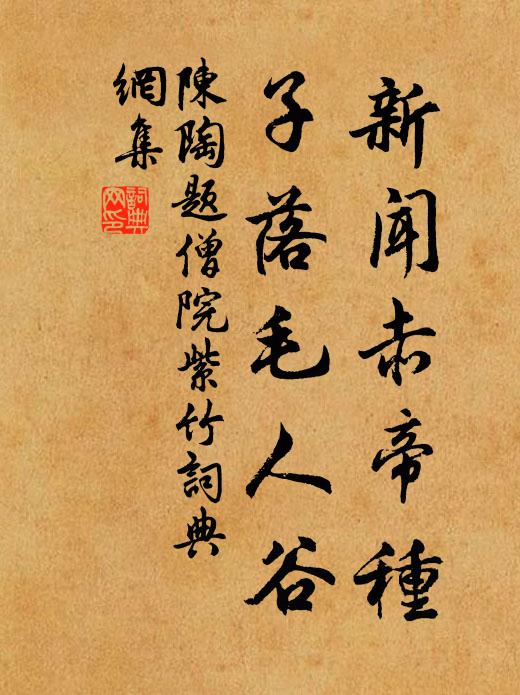 新聞赤帝種
子落毛人谷
陳陶題僧院紫竹詞典
網集
詞典
网印